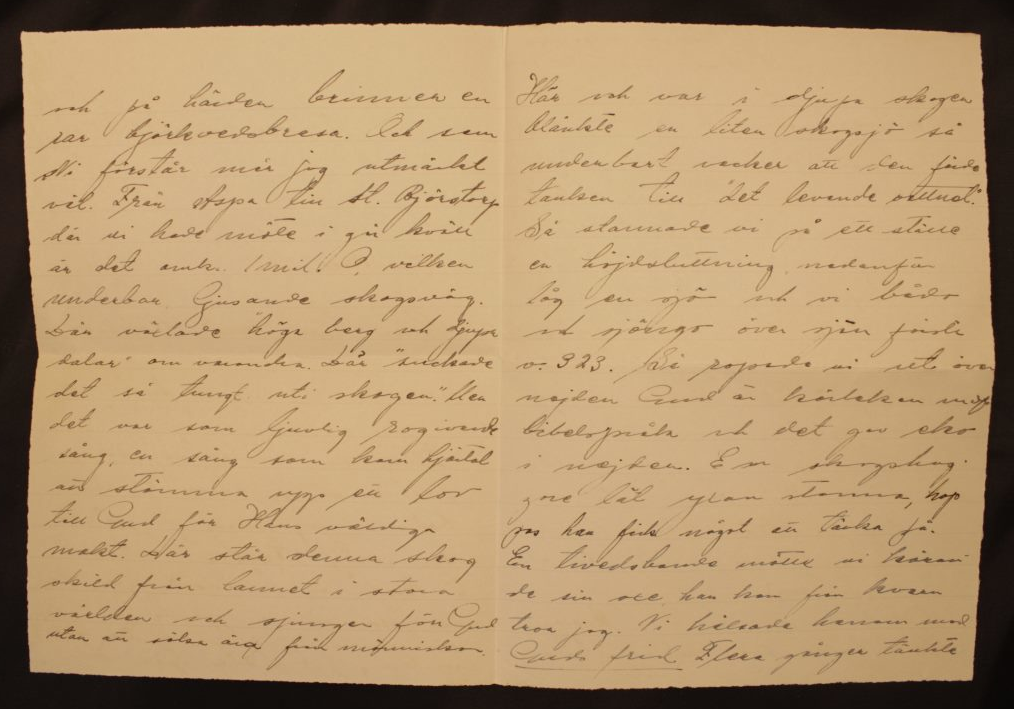 och på härden brinner en
rar björkvedsbrasa. Och som
Ni förstår mår jag utmärkt
väl. Från Aspa till St. Björstorp
där vi hade möte i går kväll
är det omk. 1 mil. O, vilken
underbar ljusande skogsväg.
Där växlade "höga berg och djupa
dalar" om varandra. Där "suckade
det så tungt uti skogen." Men
det var som ljuvlig rogivande
sång, en sång som kom hjärtat
att stämma upp ett lov
till Gud för Hans väldiga
makt. Där står denna skog
skild från larmet i stora
världen och sjunger för Gud
utan att söka ära från människor.
Här och var i djupa skogen
blänkte en liten skogssjö så
underbart vacker att den förde
tanken till "det levande vattnet."
Så stannade vi på ett ställe
en höjdsluttning, nedanför
låg en sjö och vi både
och sjöngo över sjön
v. 323. Så ropade vi ut över
nejden Gud är kärleken
bibelspråk och det gav eko
i nejden. En skogshug-
gare lät yxan stanna, hop-
pas han fick något att tänka på.
En tivedsbonde mötte vi köran-
de sin oxe, han kom från kvarn
tror jag. Vi hälsade honom med
Guds frid. Flera gånger tänkte